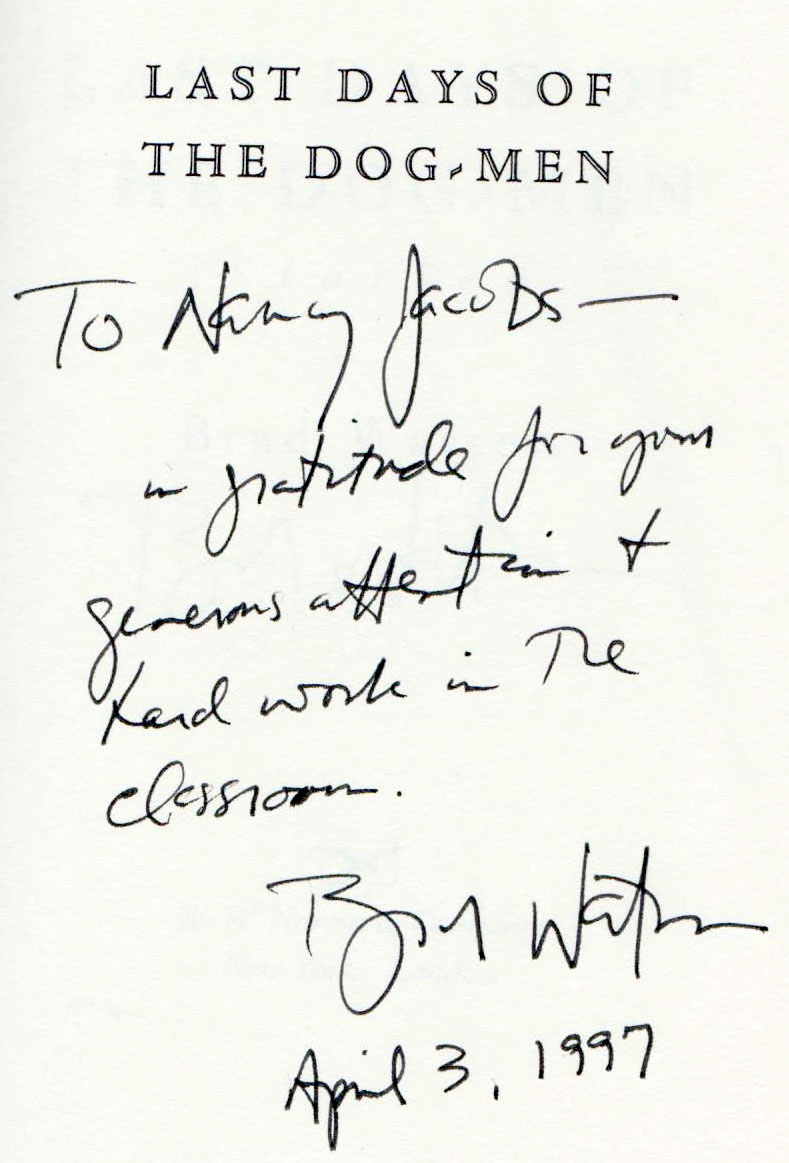 LAST DAYS OF
THE DOG-MEN
To Nancy Jacobs —
in gratitude for your
generous attention &
hard work in The
classroom.
Brad Watson
April 3, 1997